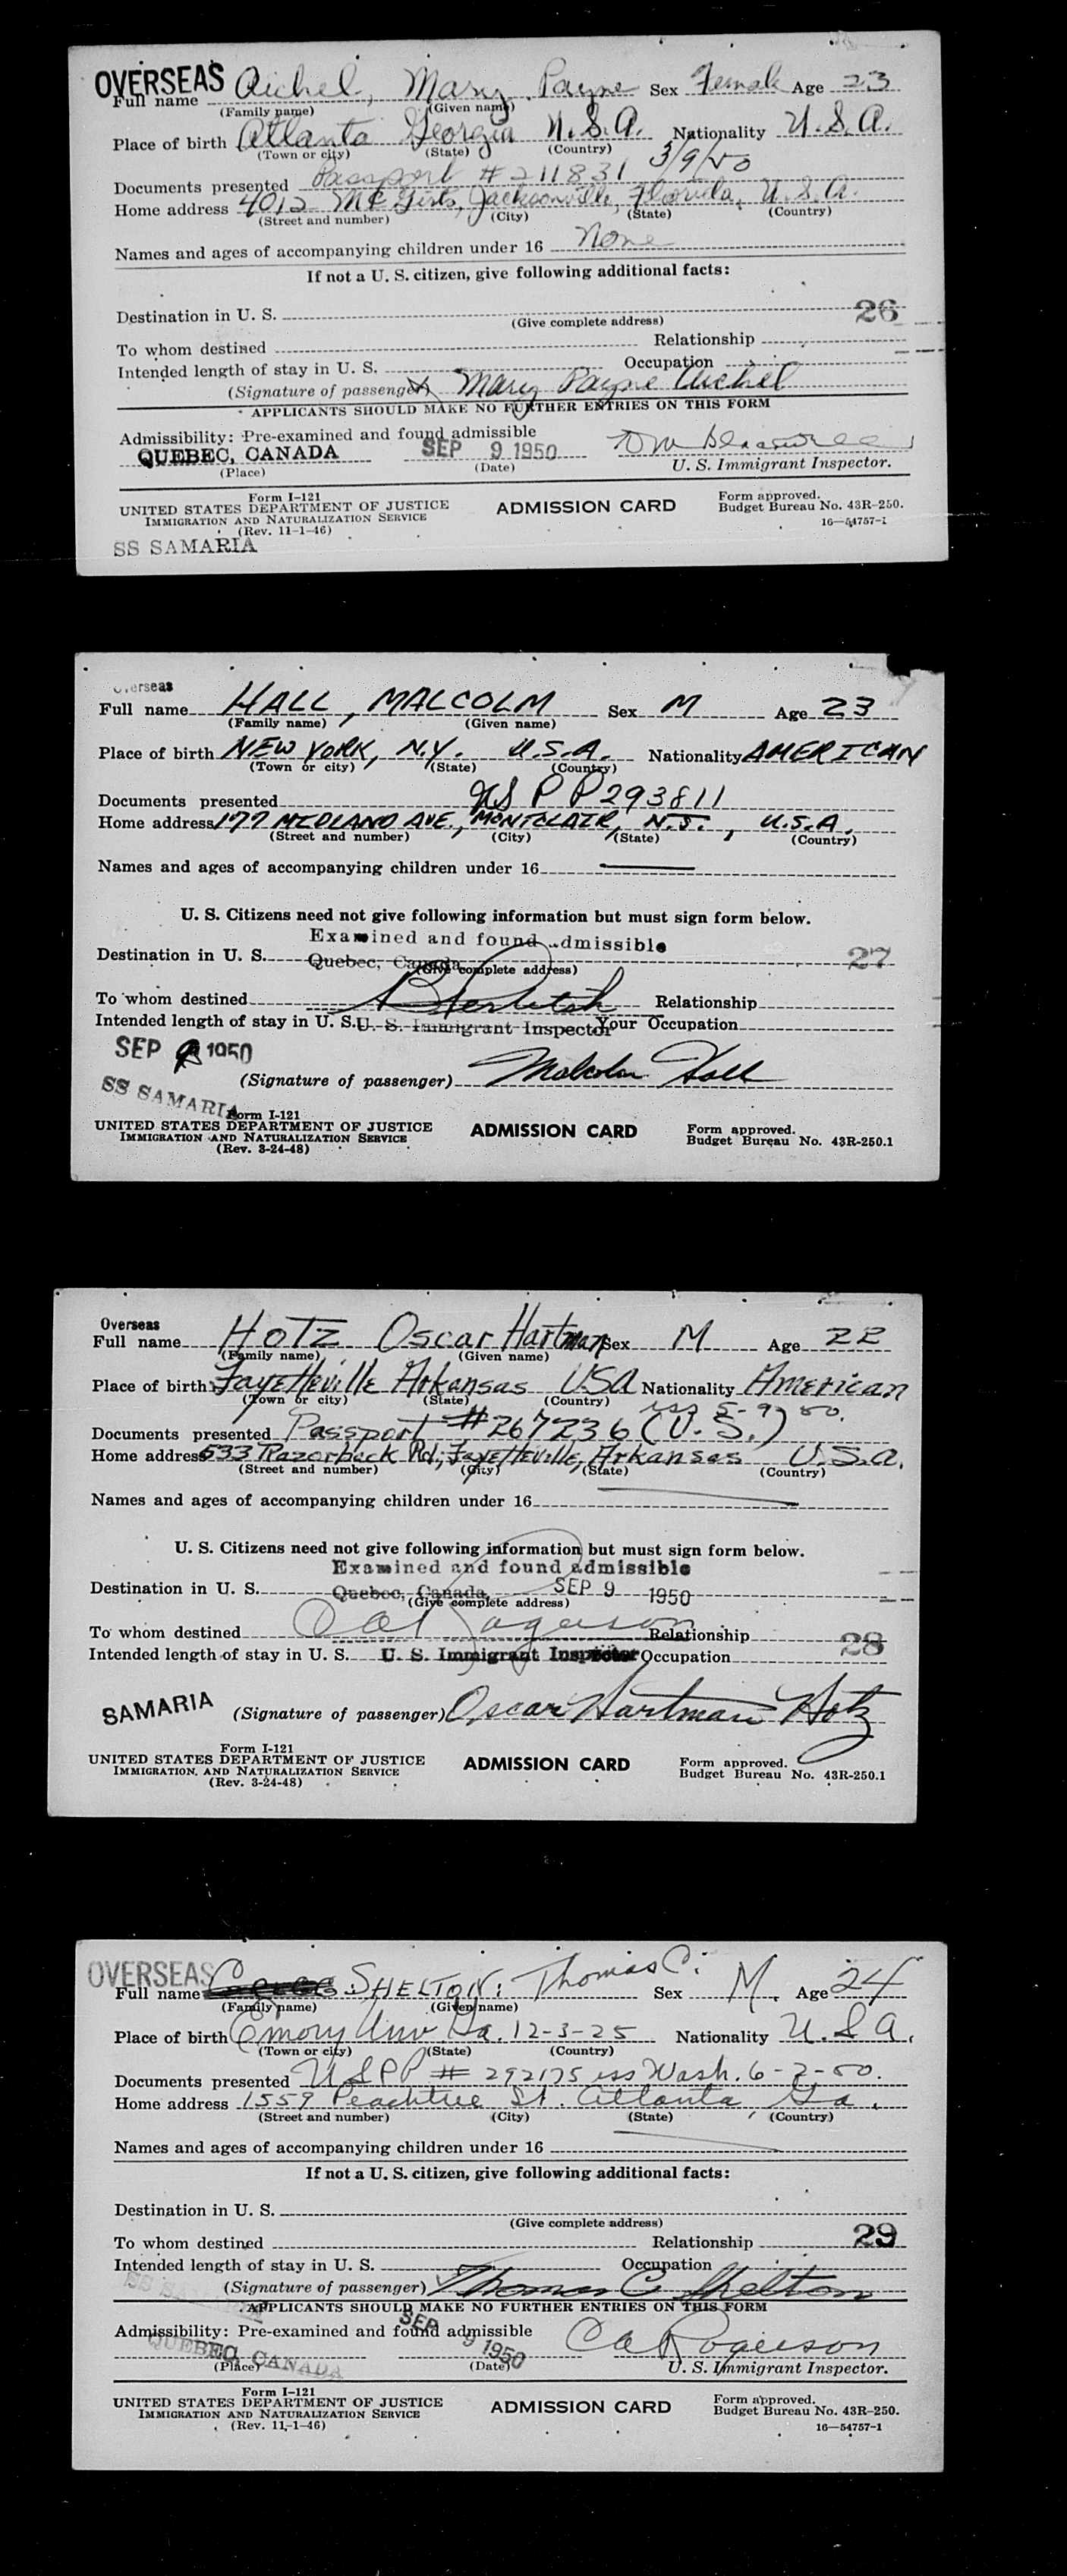 OVERSEAS
Full name Aichel, Mary Payne Sex Female Age 23
(Family name) (Given name)
Place of birth Atlanta Georgia U.S.A. Nationality U.S.A.
(Town or city) (State) (Country)
3/9/50
Documents presented Passport #211831
Home address 4012 Jacksonville, Florida, U.S.A.
(Street and number) (City) (State) (Country)
Names and ages of accompanying children under 16 None
If not a U. S. citizen, give following additional facts:
Destination in U. S. 26
(Give complete address)
To whom destined Relationship
Intended length of stay in U. S. Occupation
(Signature of passenger) X Mary Payne Aichel
APPLICANTS SHOULD MAKE NO FURTHER ENTRIES ON THIS FORM
Admissibility: Pre-examined and found admissible
QUEBEC, CANADA SEP 9 1950
(Place) (Date) U. S. Immigrant Inspector.
Form I-121
UNITED STATES DEPARTMENT OF JUSTICE
IMMIGRATION AND NATURALIZATION SERVICE
(Rev. 11-1-46)
ADMISSION CARD
Form approved.
Budget Bureau No. 43R-250.
16—54757-1
SS SAMARIA
Overseas
Full name HALL, MALCOLM Sex M Age 23
(Family name) (Given name)
Place of birth NEW YORK, N.Y. U.S.A. Nationality AMERICAN
(Town or city) (State) (Country)
Documents presented US PP 293811
Home address 177 MIDLAND AVE, MONTCLAIR, N.J., U.S.A.
(Street and number) (City) (State) (Country)
Names and ages of accompanying children under 16
U. S. Citizens need not give following information but must sign form below.
Examined and found admissible
Destination in U. S. Quebec, Canada 27
(Give complete address)
To whom destined Relationship
Intended length of stay in U. S. U. S. Immigrant Inspector Your Occupation
SEP 9 1950
SS SAMARIA
(Signature of passenger) Malcolm Hall
Form I-121
UNITED STATES DEPARTMENT OF JUSTICE
IMMIGRATION AND NATURALIZATION SERVICE
(Rev. 3-24-48)
ADMISSION CARD
Form approved.
Budget Bureau No. 43R-250.1
Overseas
Full name HOTZ Oscar Hartman Sex M Age 22
(Family name) (Given name)
Place of birth Fayetteville Arkansas USA Nationality American
(Town or city) (State) (Country)
iss 5-9-50.
Documents presented Passport #267236 (U.S.)
Home address 533 Razorback Rd, Fayetteville, Arkansas U.S.A.
(Street and number) (City) (State) (Country)
Names and ages of accompanying children under 16
U. S. Citizens need not give following information but must sign form below.
Examined and found admissible
Destination in U. S. Quebec, Canada, SEP 9 1950
(Give complete address)
To whom destined Relationship 28
Intended length of stay in U. S. U. S. Immigrant Inspector Occupation
SAMARIA (Signature of passenger) Oscar Hartman Hotz
Form I-121
UNITED STATES DEPARTMENT OF JUSTICE
IMMIGRATION AND NATURALIZATION SERVICE
(Rev. 3-24-48)
ADMISSION CARD
Form approved.
Budget Bureau No. 43R-250.1
OVERSEAS
Full name SHELTON: Thomas C. Sex M. Age 24
(Family name) (Given name)
Place of birth Emory Univ Ga. 12-3-25 Nationality U.S.A.
(Town or city) (State) (Country)
Documents presented USPP # 292175 iss Wash. 6-2-50.
Home address 1559 Peachtree St. Atlanta, Ga.
(Street and number) (City) (State) (Country)
Names and ages of accompanying children under 16
If not a U. S. citizen, give following additional facts:
Destination in U. S.
(Give complete address)
To whom destined Relationship 29
Intended length of stay in U. S. Occupation
(Signature of passenger) Thomas C Shelton
APPLICANTS SHOULD MAKE NO FURTHER ENTRIES ON THIS FORM
Admissibility: Pre-examined and found admissible
QUEBEC, CANADA SEP 9 1950 CA Rogerson
(Place) (Date) U. S. Immigrant Inspector.
Form I-121
UNITED STATES DEPARTMENT OF JUSTICE
IMMIGRATION AND NATURALIZATION SERVICE
(Rev. 11-1-46)
ADMISSION CARD
Form approved.
Budget Bureau No. 43R-250.
16—54757-1